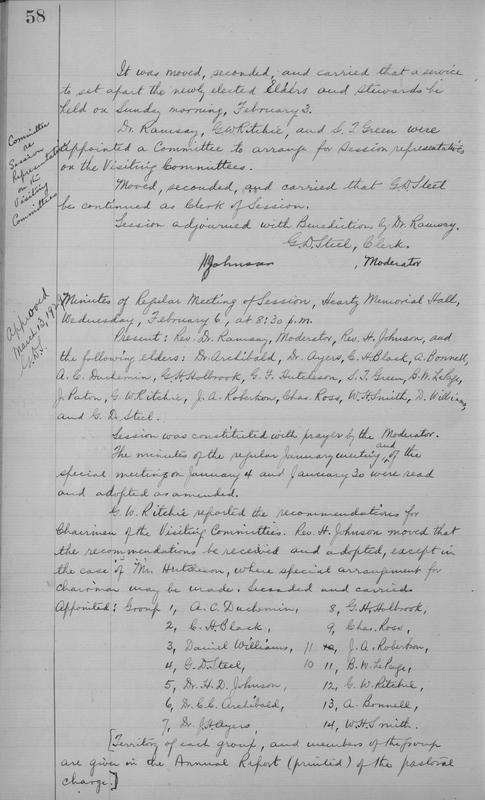 58
It was moved, seconded, and carried that a service
to set apart the newly elected Elders and Stewards be
held on Sunday morning, February 3.
Dr. Ramsay, G.W. Ritchie, and S.T. Green were
appointed a Committee to arrange for Session representatives
on the Visiting Committees.
Committee
re
Session
Representatives
on the
Visiting
Committees
Moved, seconded, and carried that G.D. Steel
be continued as Clerk of Session.
Session adjourned with Benediction by Dr. Ramsay.
G.D. Steel, Clerk.
H Johnson , Moderator
Approved
March 13, 1929
G.D.S.
Minutes of Regular Meeting of Session, Heartz Memorial Hall,
Wednesday, February 6, at 8:30 p.m.
Present: Rev. Dr. Ramsay, Moderator, Rev. H. Johnson, and
the following elders: Dr. Archibald, Dr. Ayers, C.H. Black, A. Bonnell,
A.C. Duchemin, G.H. Holbrook, G.F. Hutcheson, S.T. Green, B.W. LePage,
J. Paton, G.W. Ritchie, J.A. Robertson, Chas. Ross, W.H. Smith, D. Williams,
and G.D. Steel.
Session was constituted with prayer by the Moderator.
The minutes of the regular January meeting and of the
special meeting on January 4 and January 30 were read
and adopted as amended.
G.W. Ritchie reported the recommendations for
Chairmen of the Visiting Committees. Rev. H. Johnson moved that
the recommendations be received and adopted, except in
the case of Mr. Hutcheson, where special arrangement for
Chairman may be made. Seconded and carried.
Appointed: Group 1, A.C. Duchemin, 8, G.H. Holbrook,
2, C.H. Black, 9, Chas. Ross,
3, Daniel Williams, 11 10, J.A. Robertson,
4, G.D. Steel, 10 11, B.W. LePage,
5, Dr. H.D. Johnson, 12, G.W. Ritchie,
6, Dr. C.C. Archibald, 13, A. Bonnell,
7, Dr. J.H. Ayers, 14, W.H. Smith.
[Territory of each group, and members of the group
are given in the Annual Report (printed) of the pastoral
charge.]